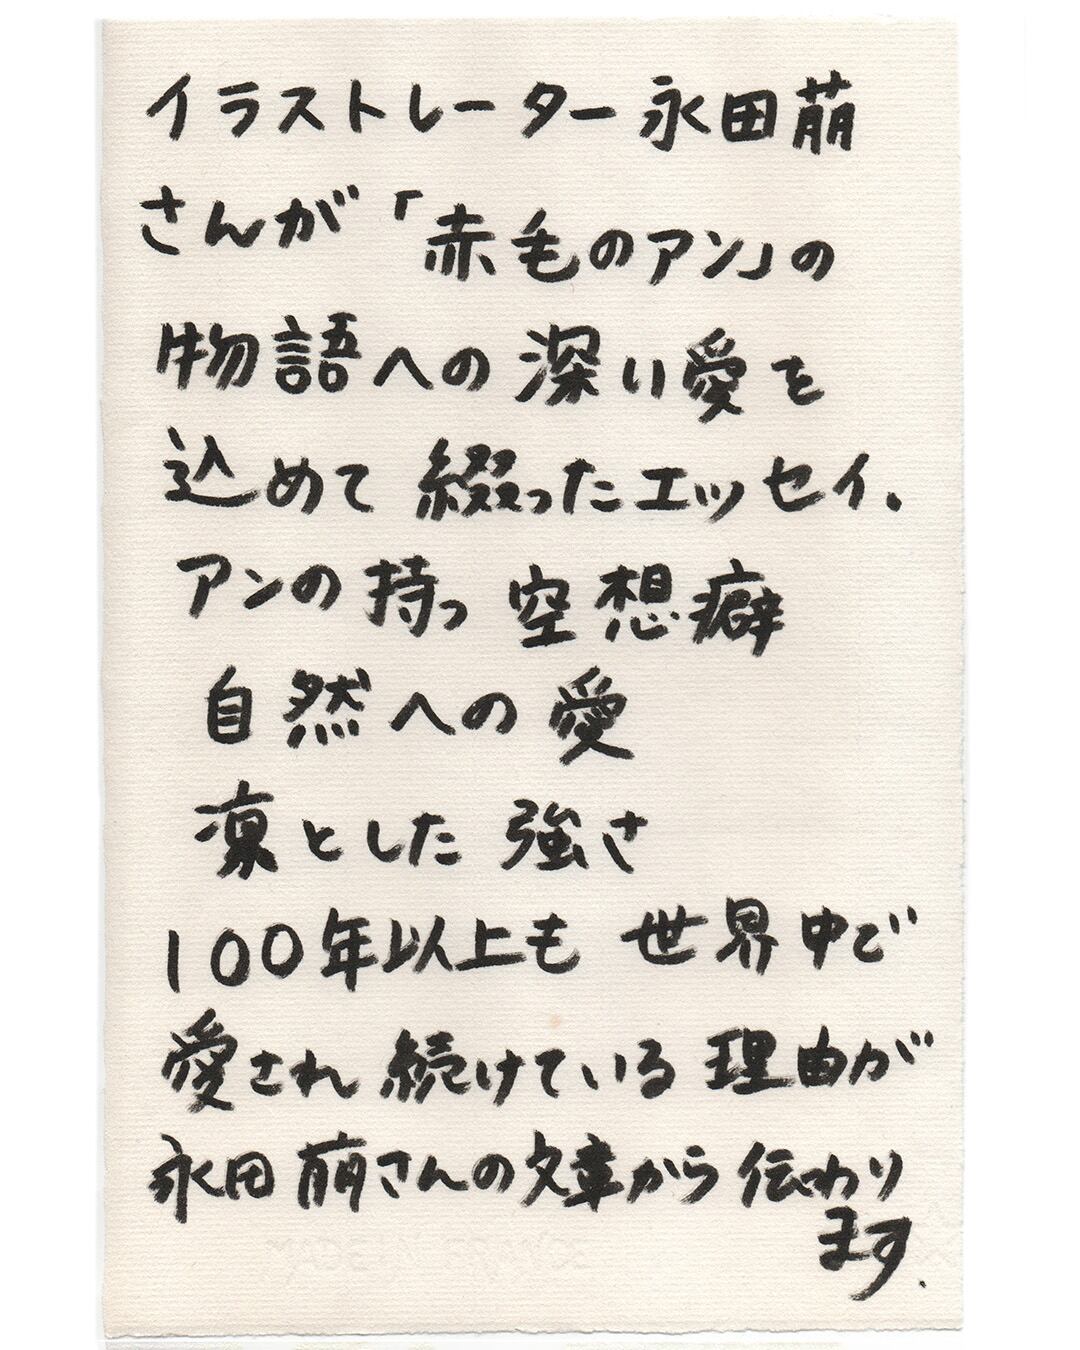 イラストレーター永田萠
さんが「赤毛のアン」の
物語への深い愛を
込めて綴ったエッセイ.
アンの持つ空想癖
自然への愛
凛とした強さ
100年以上も世界中で
愛され続けている理由が
永田萠さんの文章から伝わり
ます.